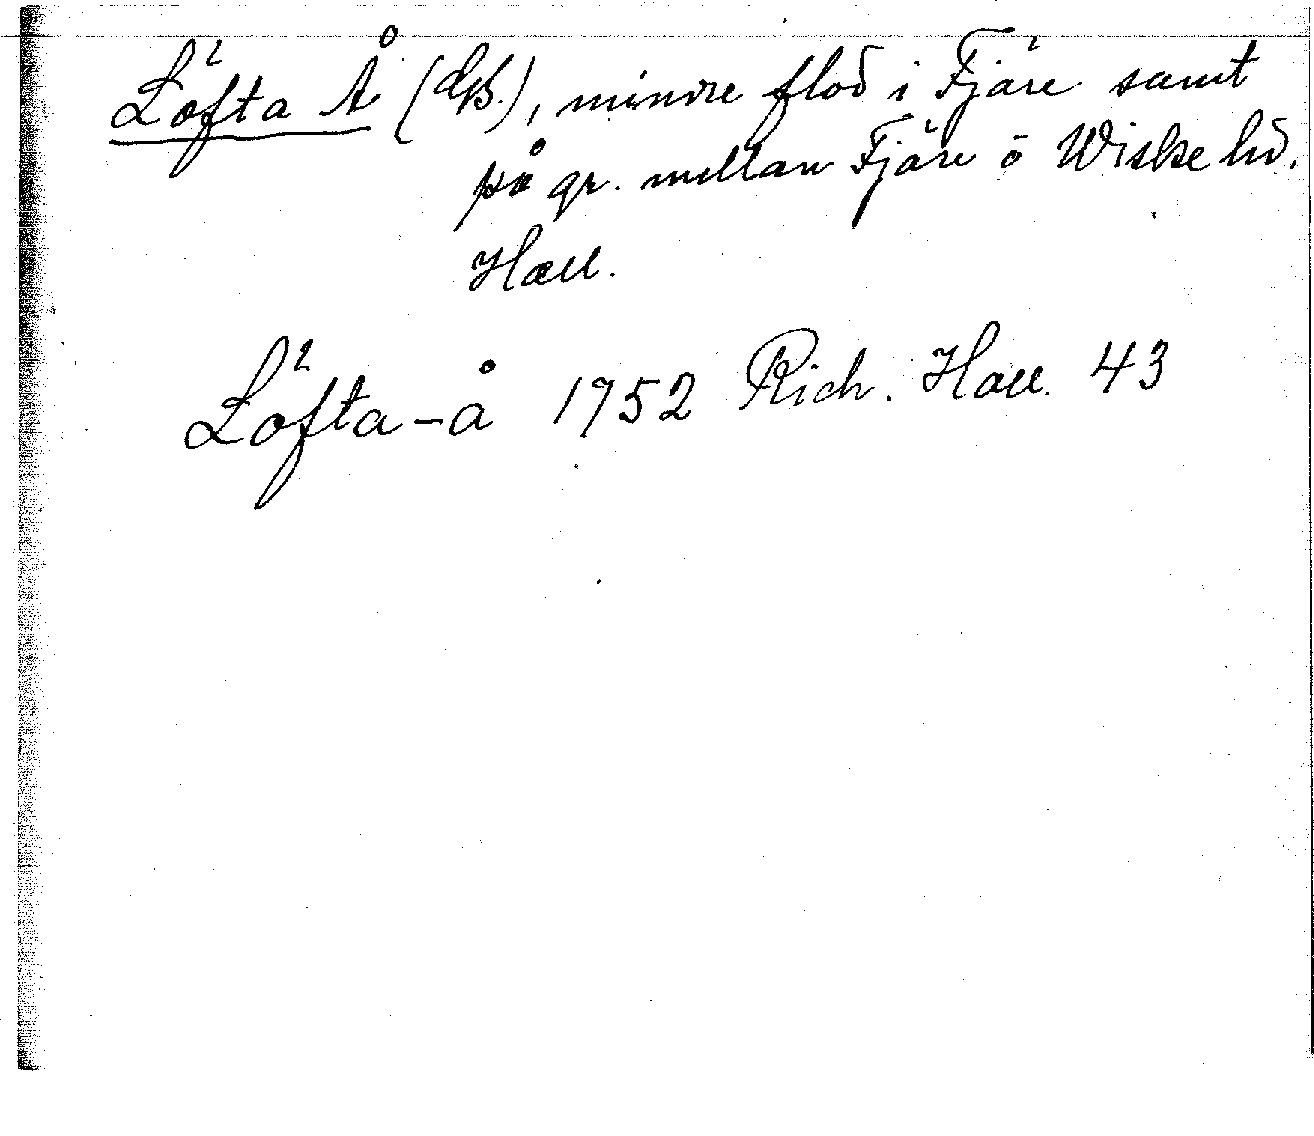 Löfta Å (GS.), mindre flod i Fjäre samt
på gr. mellan Fjäre o Wiske hd.
Hall.
Löfta-å 1752 Rich. Hall. 43